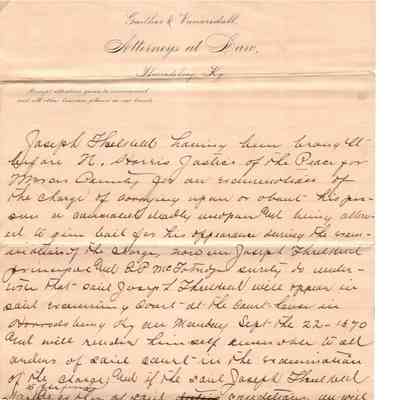 Gaither & Vanarsdall.
Attorneys at Law,
Harrodsburg, Ky.
Prompt attention given to
and all other business placed in our hands.
Joseph Threldkeld having been brought
before N. Norris Justice of the Peace for
Mercer County for an examination of
the charge of carrying upon or about his per-
son a concealed deadly weapon and being allow-
ed to give bail for his appearance during the exam-
ination of the charge, now we Joseph Threlkeld
principal and surety do under-
write that said Joseph Threlkeld will appear in
said examining court at the Court house in
Harrodsburg Ky on Monday Sept the 22 - 1890
and will render himself answerable to all
orders of said court in the examination
of the charge and if the said Joseph Threlkeld
of said we will